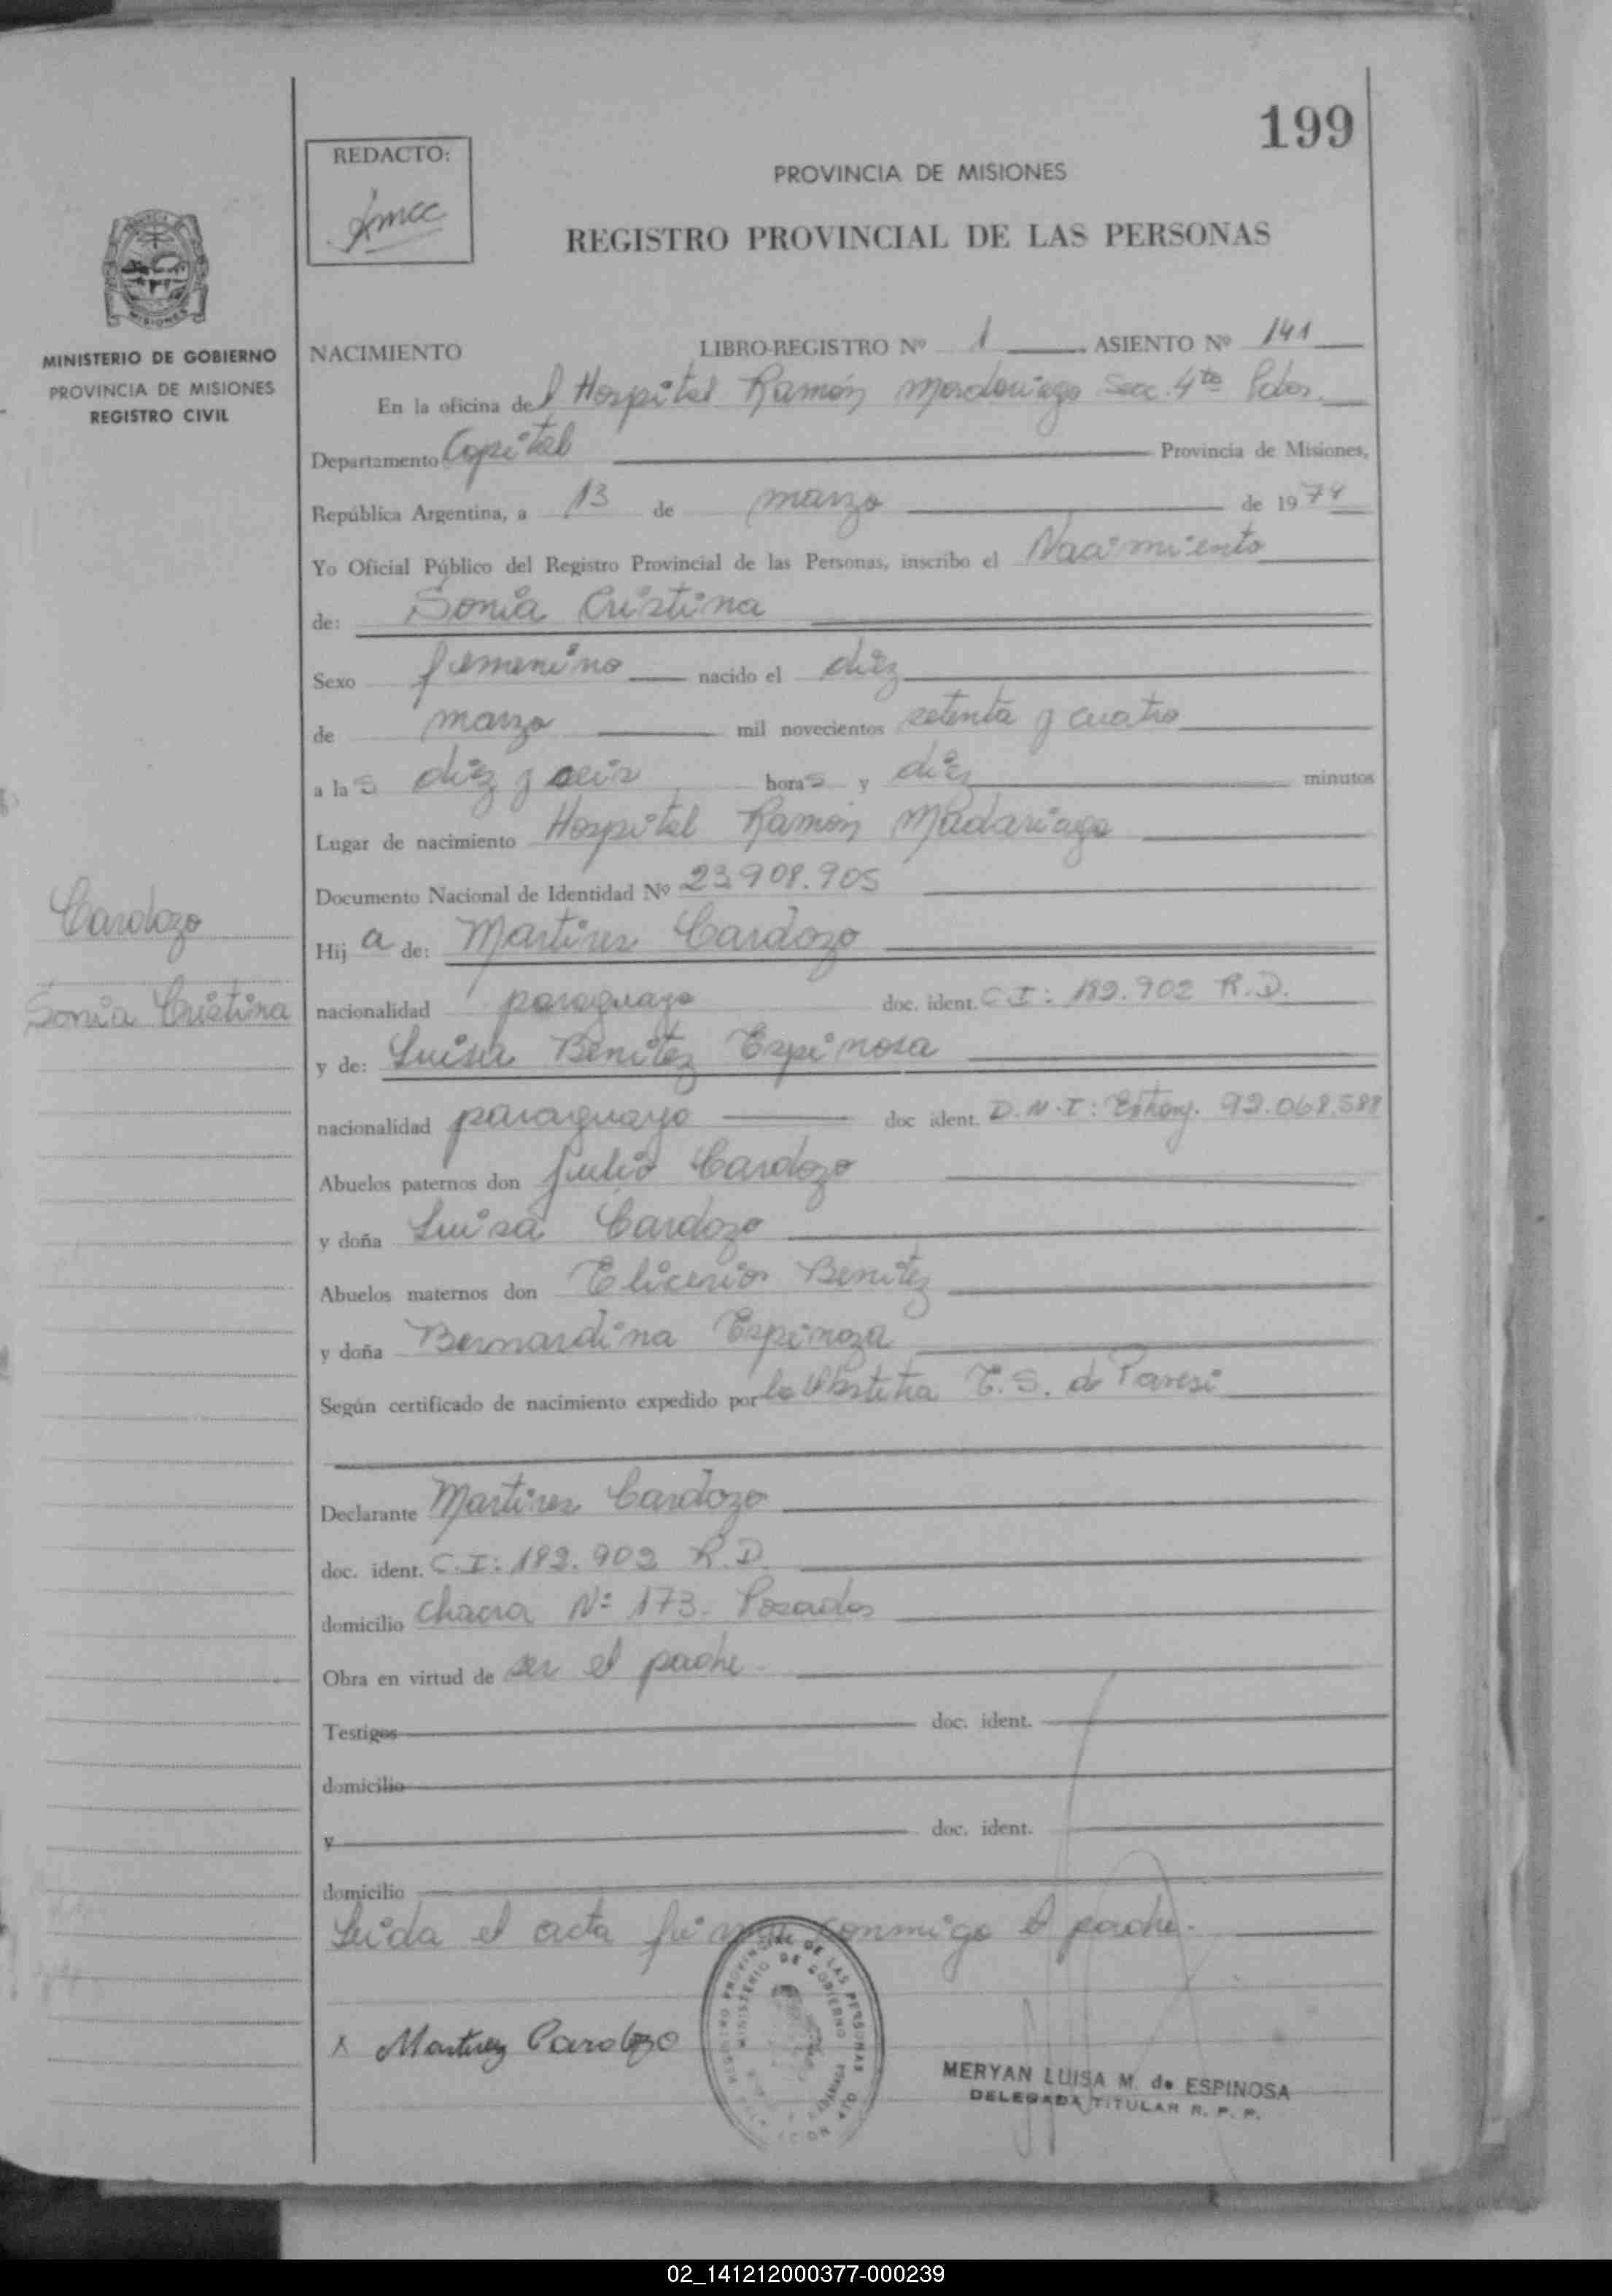 199
REDACTO:
PROVINCIA DE MISIONES
REGISTRO PROVINCIAL DE LAS PERSONAS
MISIONES
MINISTERIO DE GOBIERNO
PROVINCIA DE MISIONES
REGISTRO CIVIL
NACIMIENTO LIBRO-REGISTRO Nº 1 ASIENTO Nº 141
En la oficina del Hospital Ramón Secc. 4ta Pdas.
Departamento Capital Provincia de Misiones,
República Argentina, a 13 de marzo de 1974
Yo Oficial Público del Registro Provincial de las Personas, inscribo el Nacimiento
de: Sonia Cristina
Sexo femenino nacido el diez
de marzo mil novecientos setenta y cuatro
a las diez y seis horas y diez minutos
Lugar de nacimiento Hospital Ramón Madariaga
Documento Nacional de Identidad Nº 23.908.905
Cardozo
Sonia Cristina
Hija de: Martires Cardozo
nacionalidad paraguaya doc. ident. C.I: 182.902 R.D.
y de: Luisa Benitez Espinosa
nacionalidad paraguaya doc ident. D.N.I: Extranj. 92.068.588
Abuelos paternos don Julio Cardozo
y doña Luisa Cardozo
Abuelos maternos don Elicerio Benitez
y doña Bernardina Espinoza
Según certificado de nacimiento expedido por la Obstetra E.S. de Paresi
Declarante Martires Cardozo
doc. ident. C.I: 182.902 R.D.
domicilio Chacra Nº 173- Posadas
Obra en virtud de ser el padre-
Testigos doc. ident.
domicilio
y doc. ident.
domicilio
Leida el acta firma conmigo el padre.-
x Martirez Cardozo
REGISTRO PROVINCIAL DE LAS PERSONAS
MINISTERIO DE GOBIERNO
MERYAN LUISA M. de ESPINOSA
DELEGADA TITULAR R. P. P.
02_141212000377-000239